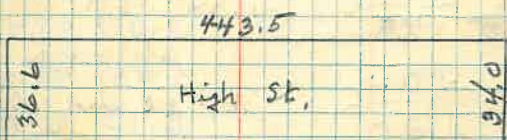 443.5
36.6
High St.
34.0